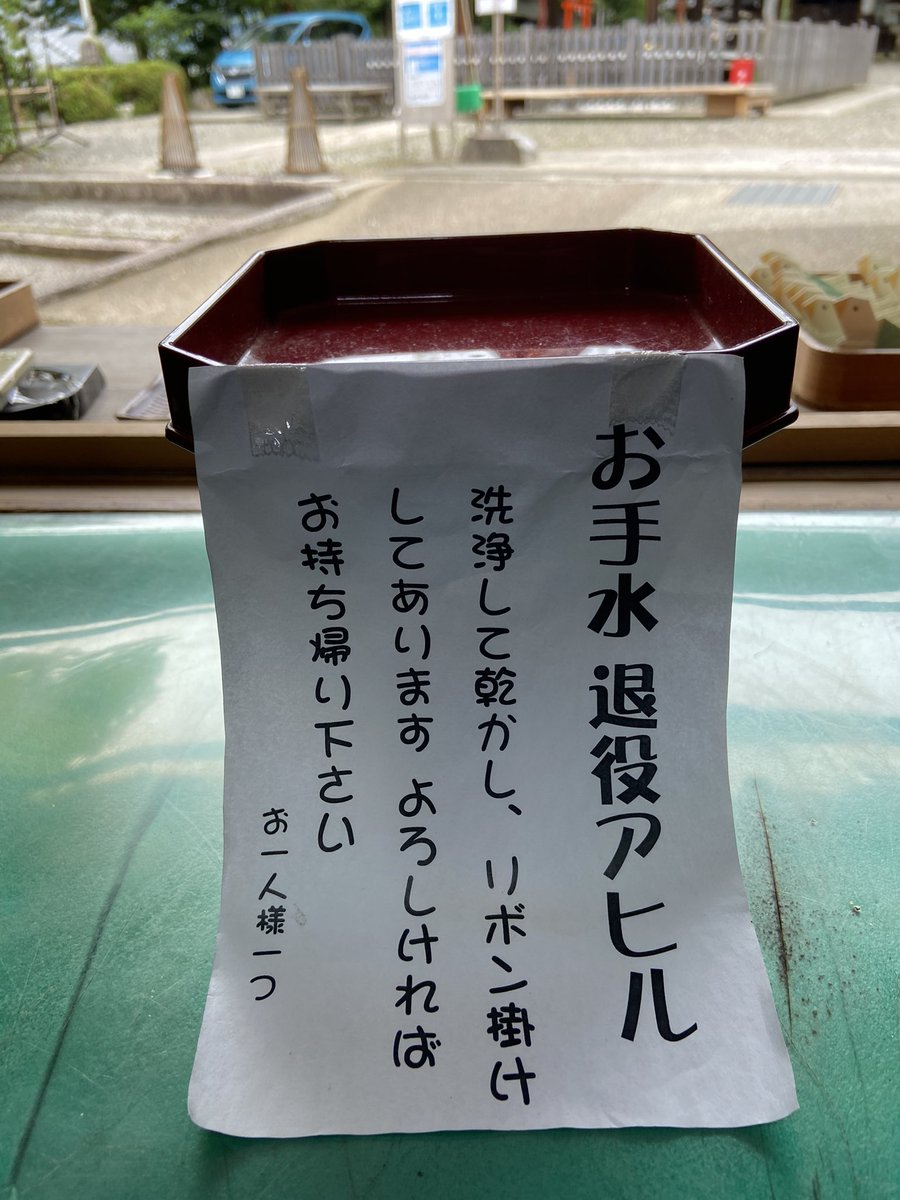 お手水 退役アヒル
洗浄して乾かし、リボン掛け
してあります よろしければ
お持ち帰り下さい
お一人様一つ